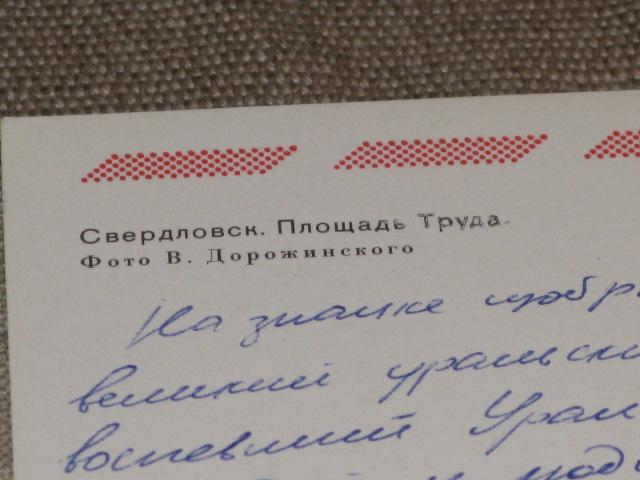 Свердловск. Площадь Труда.
Фото В. Дорожинского
На значке изобр
великий уральски
воспевший Урал